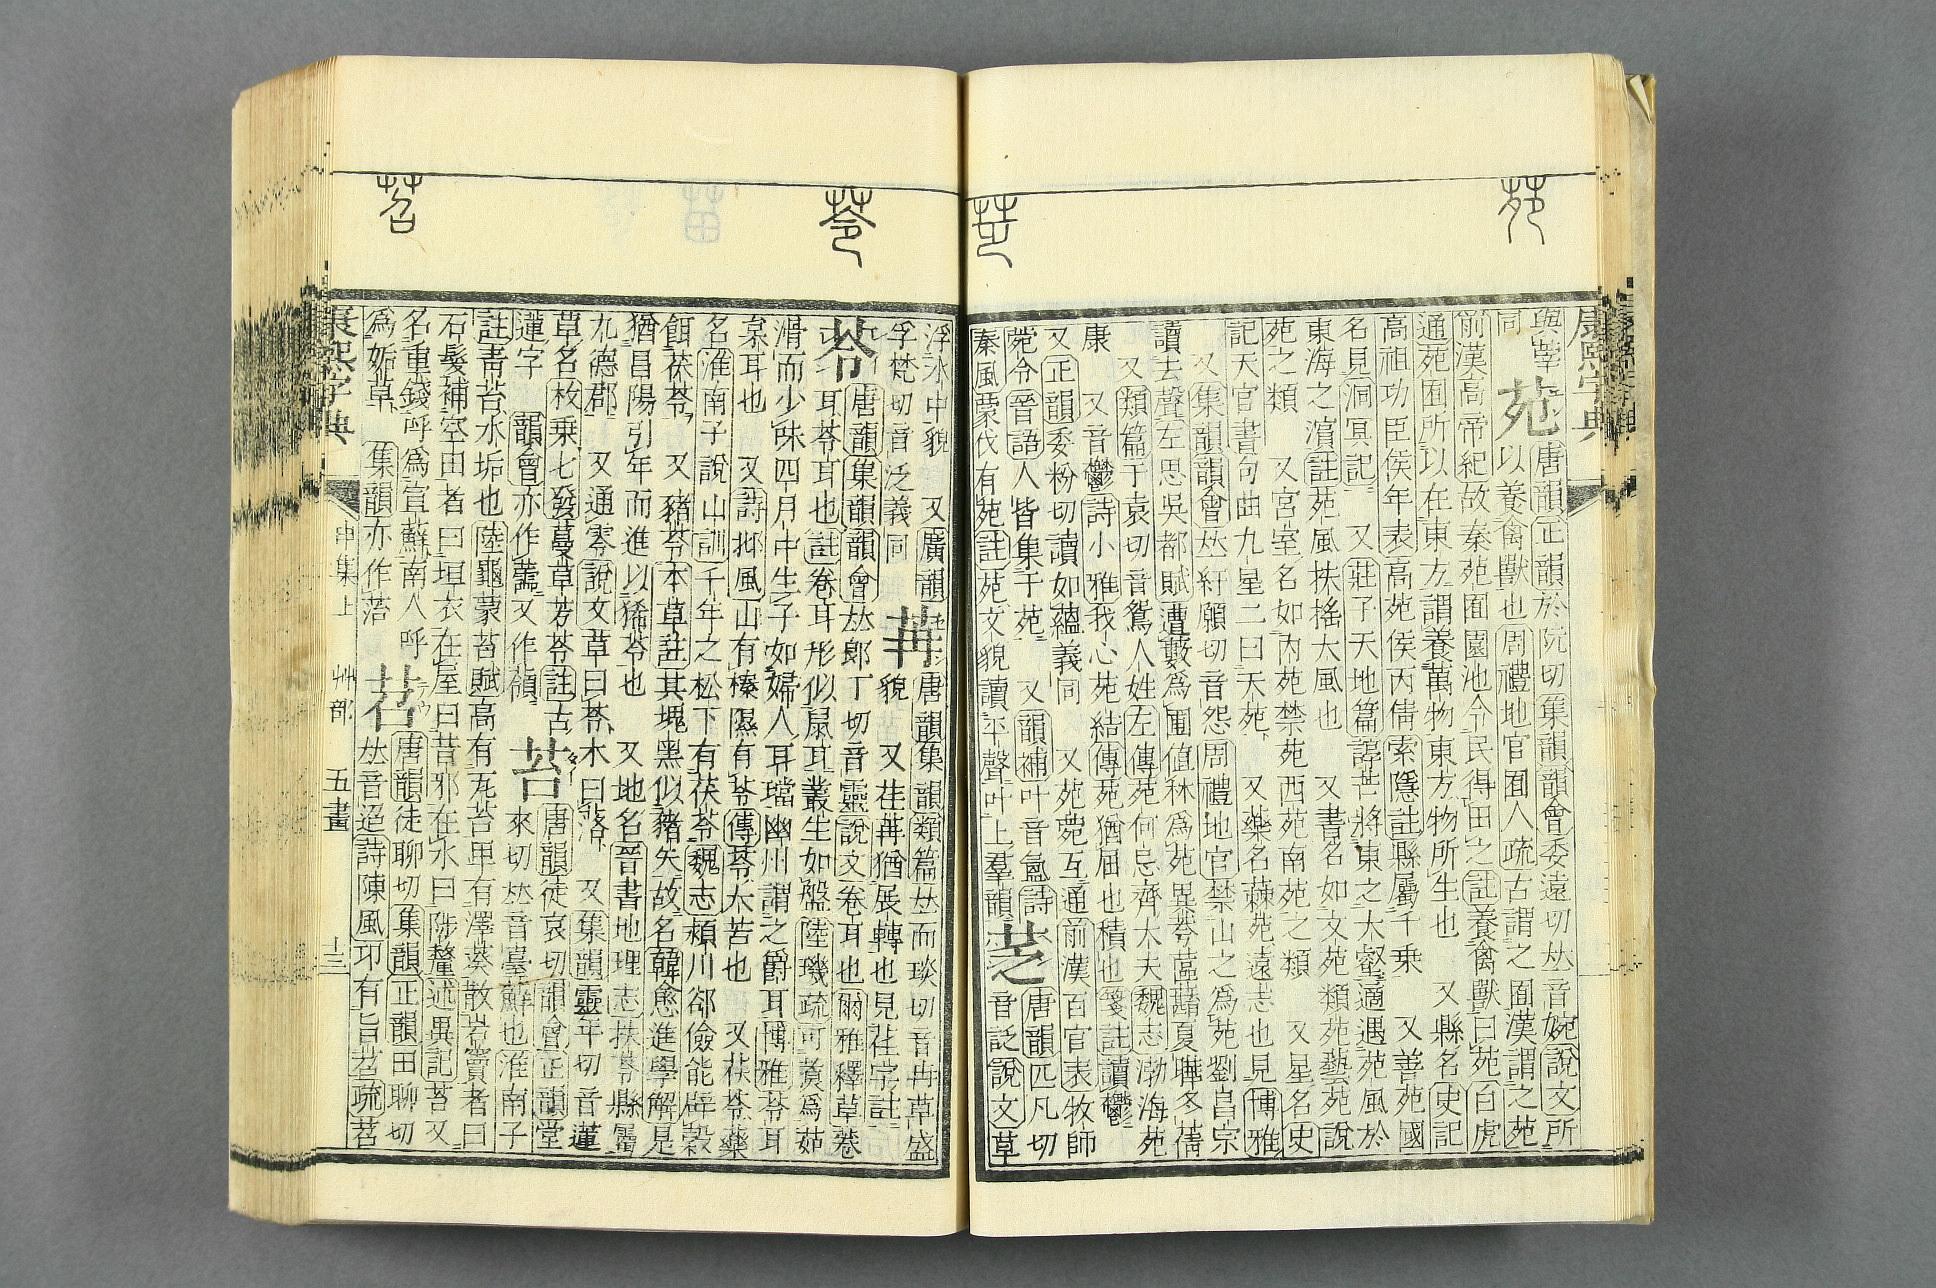 苑
康熙字典
與蕐
同
苑
唐韻正韻於阮切集韻韻會委遠切𠀤音婉說文所
以養禽獸也周禮地官囿人疏古謂之囿漢謂之苑
前漢高帝紀故秦苑囿園池令民得田之註養禽獸曰苑白虎
通苑囿所以在東方謂養萬物東方物所生也 又縣名史記
高祖功臣侯年表高苑侯丙倩索隱註縣屬千乗 又善苑國
名見洞冥記 又莊子天地篇諄芒將東之大壑適遇苑風於
東海之濵註苑風扶搖大風也 又書名如文苑類苑藝苑說
苑之類 又宮室名如內苑禁苑西苑南苑之類 又星名史
記天官書句曲九星二曰天苑 又藥名蕀苑遠志也見博雅
又集韻韻會𠀤紆願切音怨周禮地官禁山之爲苑劉昌宗
讀去聲左思吳都賦遭藪爲圃値秝爲苑異荂蓲蘛夏曄冬蒨
又類篇于袁切音鴛人姓左傳苑何忌齊大夫魏志渤海苑
康 又音鬱詩小雅我心苑結傳苑猶屈也積也箋註讀鬱
又正韻委粉切讀如蘊義同 又苑菀互通前漢百官表牧師
菀令晉語人皆集于苑 又韻補叶音氳詩
秦風蒙伐有苑註苑文貌讀平聲叶上羣韻
䒦
唐韻匹凡切
音訉說文草
苓
浮水中貌 又廣韻
孚梵切音泛義同
苒
唐韻集韻類篇𠀤而琰切音冉草盛
貌 又荏苒猶展轉也見荏字註
苓
唐韻集韻韻會𠀤郎丁切音靈說文卷耳也爾雅釋草卷
耳苓耳也註卷耳形似鼠耳叢生如盤陸璣疏可煑爲茹
滑而少味四月中生子如婦人耳璫幽州謂之爵耳博雅苓耳
枲耳也 又詩邶風山有榛隰有苓傳苓大苦也 又茯苓藥
名淮南子說山訓千年之松下有茯苓魏志潁川郤儉能辟穀
餌茯苓 又豬苓本草註其塊黑似豬矢故名韓愈進學解是
猶昌陽引年而進以豨苓也 又地名晉書地理志扶苓縣屬
九德郡 又通零說文草曰苓木曰落 又集韻靈年切音蓮
草名枚乗七發蔓草芳苓註古
蓮字 韻會亦作蘦又作蕶
苔
唐韻徒哀切韻會正韻堂
來切𠀤音臺蘚也淮南子
註靑苔水垢也陸龜蒙苔賦高有瓦苔𤰞有澤葵散岩竇者曰
石髮補空田者曰垣衣在屋曰昔邪在水曰陟釐述異記苔又
名重錢呼爲宣蘚南人呼
爲姤草 集韻亦作菭
苕
唐韻徒聊切集韻正韻田聊切
𠀤音迢詩陳風卭有旨苕疏苕
苕
康熙字典
申集上 艸部 五畫 十三